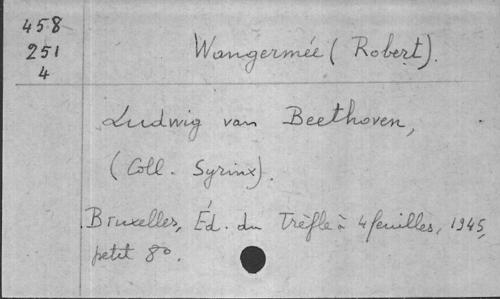 458
251
4
Wangermée (Robert).
Ludwig van Beethoven,
(Coll. Syrinx).
Bruxelles, Éd. du Trèfle à 4 feuilles, 1945,
petit 8º.